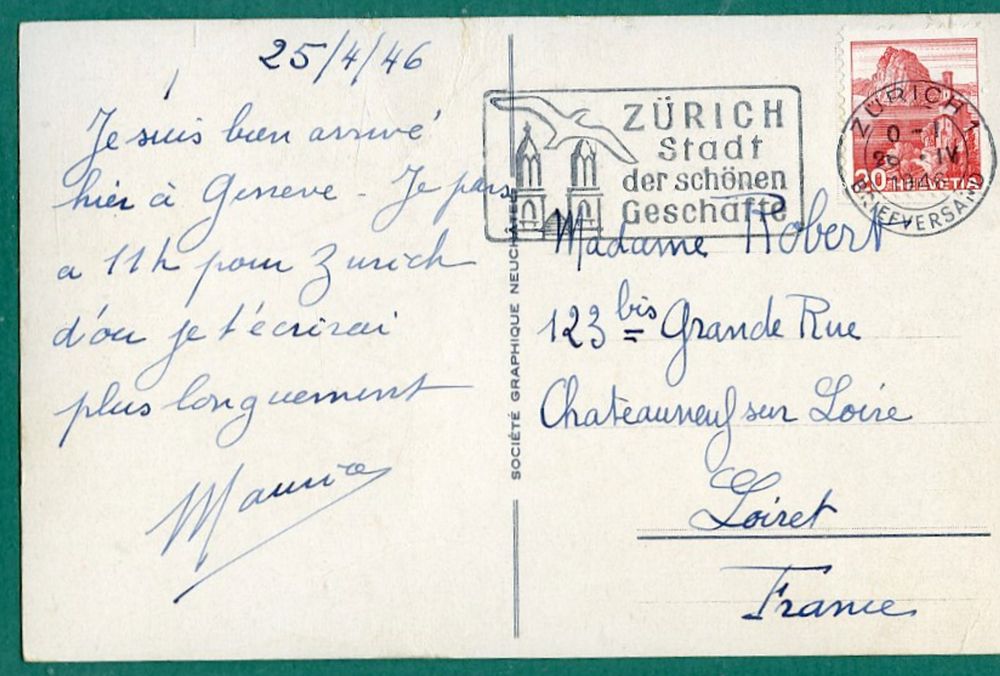 25/4/46
Je suis bien arrivé
hier à Genève - Je pars
a 11h pour Zurich
d'ou je t'écrirai
plus longuement
Maurice
SOCIÉTÉ GRAPHIQUE NEUCHÂTEL
ZÜRICH
Stadt
der schönen
Geschäfte
ZÜRICH 1
0 - 1
IV
1946
BRIEFVERSAND
20
HELVETIA
Madame Robert
123 bis Grande Rue
Chateauneuf sur Loire
Loiret
France